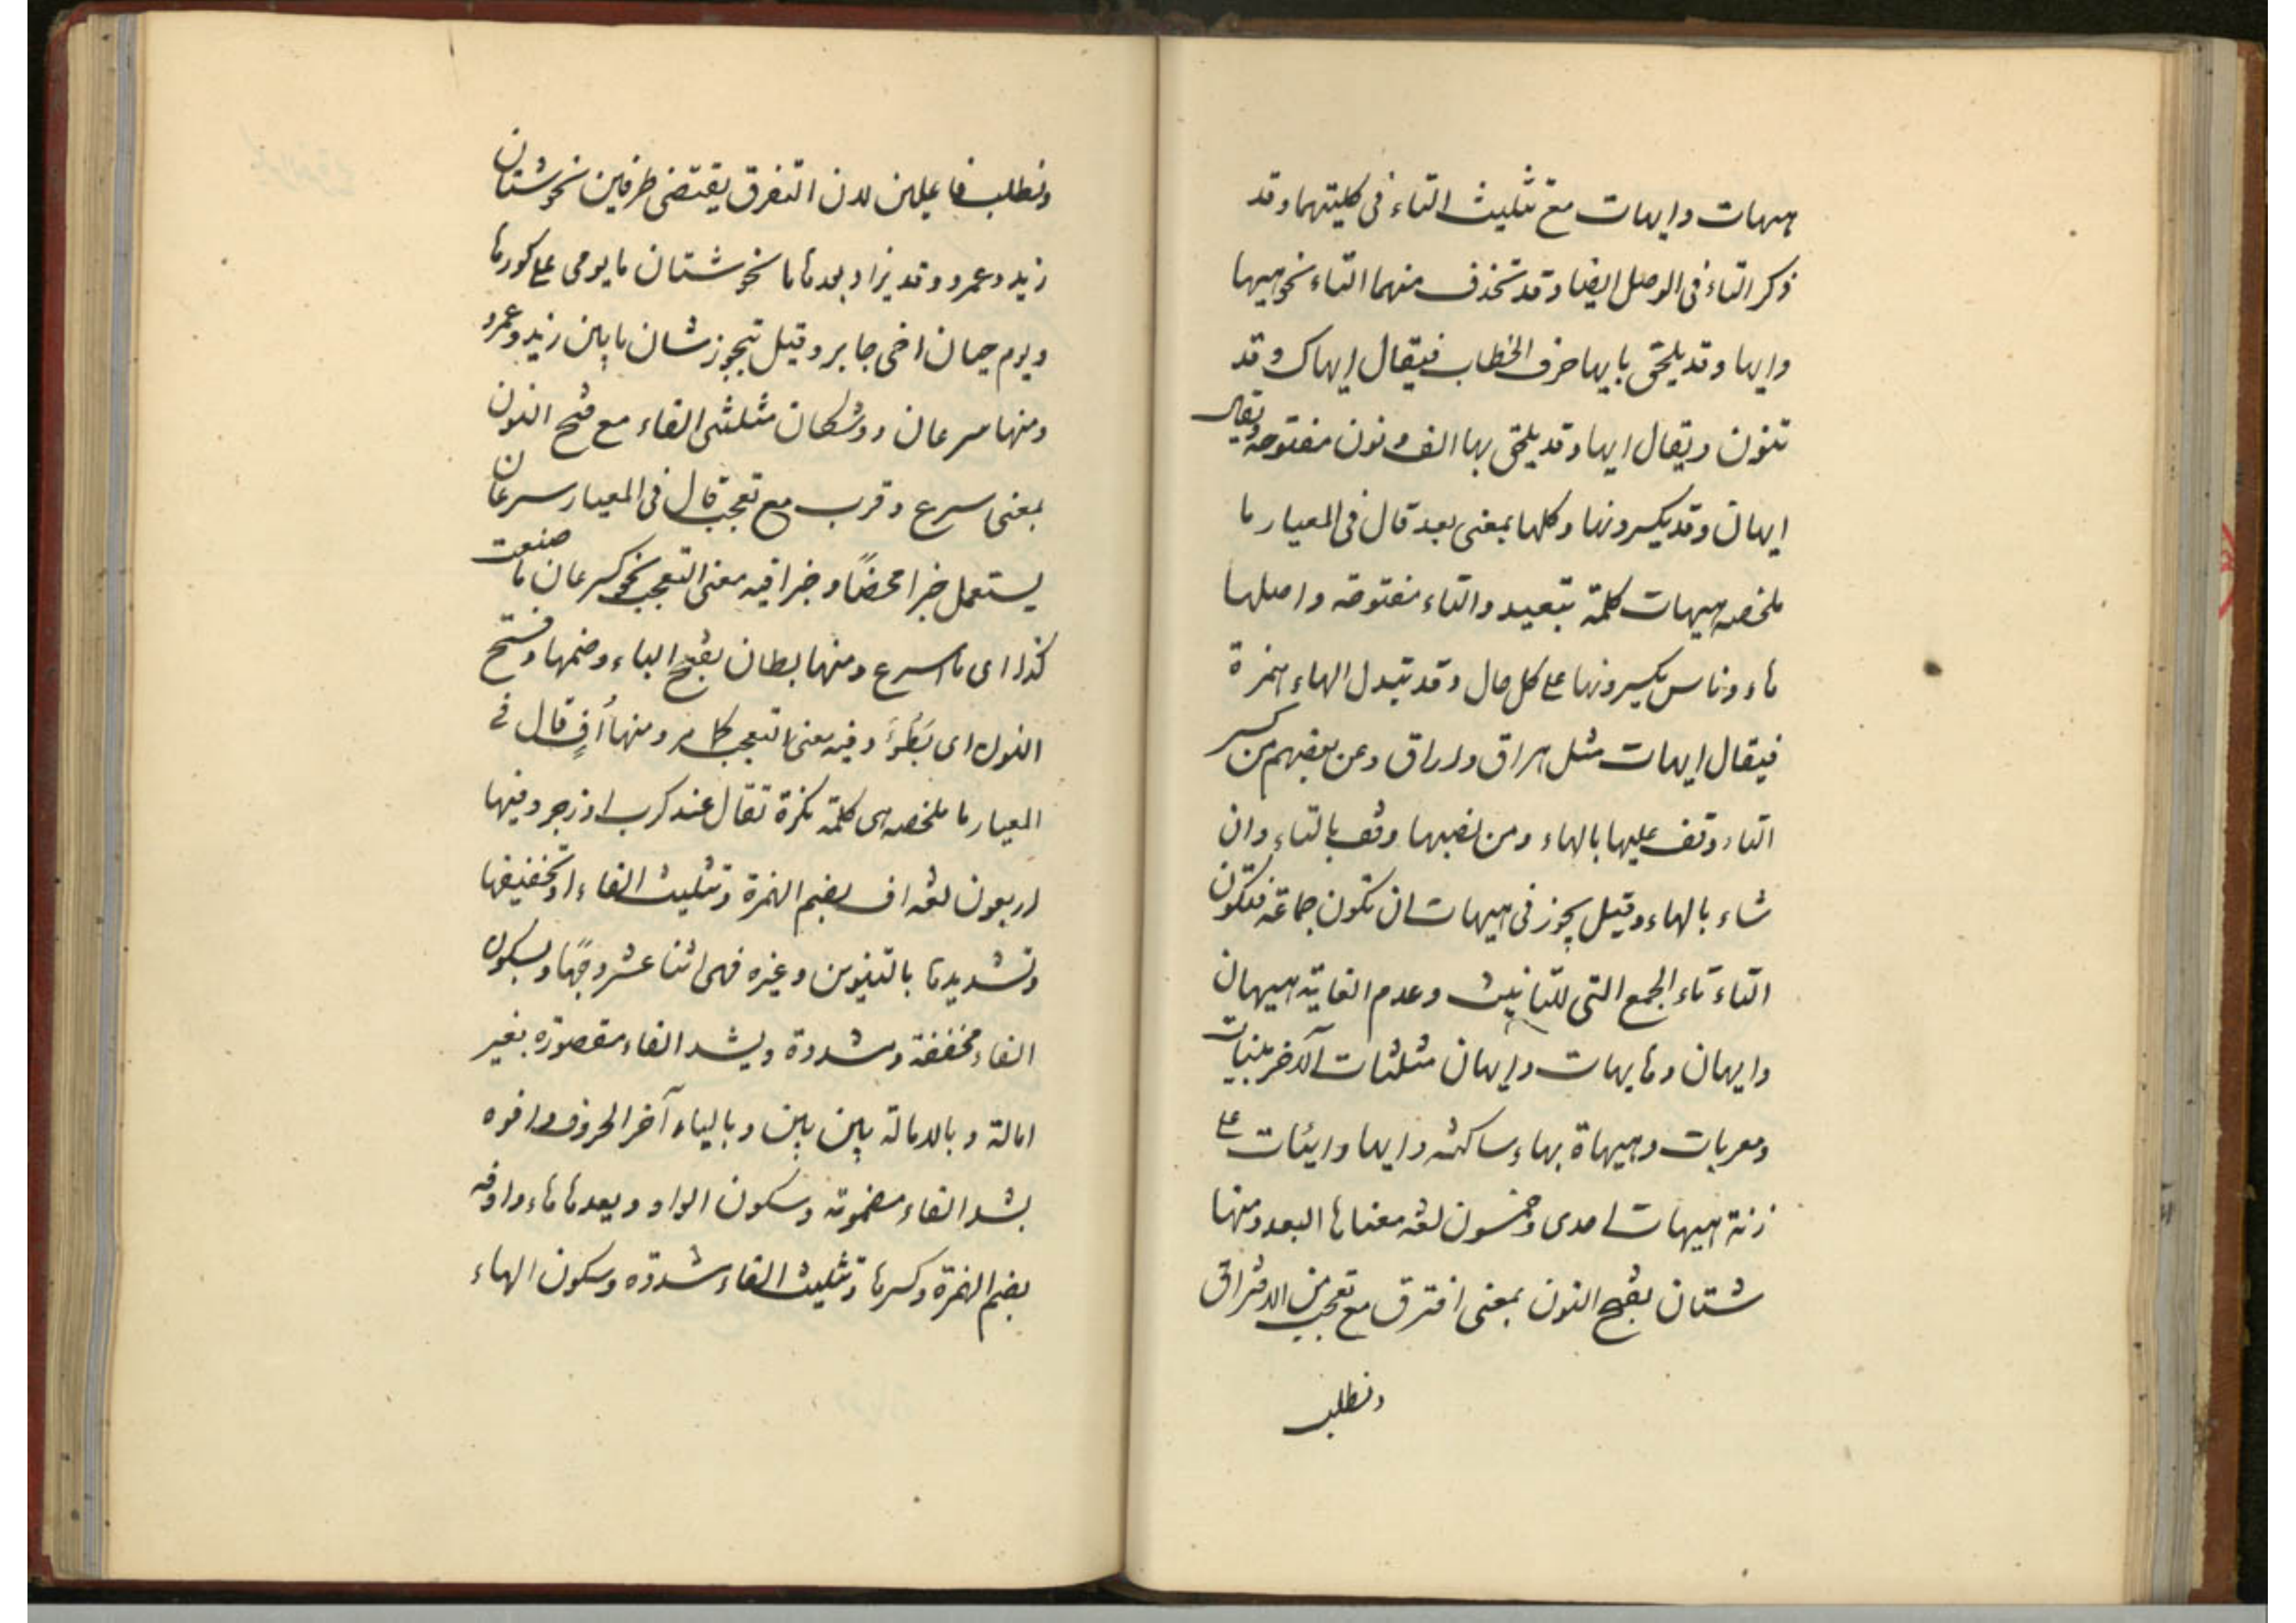 هيهات وايهات مع تثليث التاء فى كلتيهما وقد
ذكر التاء فى الوصل ايضا وقد تحذف منهما التاء نحو هيها
وايها وقد يلحق بايها حرف الخطاب فيقال ايهاك وقد
تنون ويقال ايها وقد يلحق بها الف ونون مفتوحة ويقال
ايهان وقد يكسر ونها وكلها بمعنى بعد قال فى المعيار ما
ملخصه هيهات كلمة تبعيد والتاء مفتوحة واصلها
هاء وناس يكسرونها على كل حال وقد تبدل الهاء همزة
فيقال ايهات مثل هراق واراق وعن بعضهم من كسر
التاء وقف عليها بالهاء ومن نصبها وقف بالتاء وان
شاء بالهاء وقيل يجوز فى هيهات ان تكون جماعة فتكون
التاء تاء الجمع التى للتانيث وعدم الغاية هيهان
وايهان وهايهات وايهان مثلثات الآخر مبنيات
ومعربات وهيهاة بهاء ساكنه وايها وايئات على
زنة هيهات احدى وخمسون لغه معناها البعد ومنها
شتان بفتح النون بمعنى افترق مع تعجب من الافتراق
ونطلب
ونطلب فاعيلين لان التفرق يقتضى طرفين نحو شتان
زيد وعمرو وقد يزاد بعدها ما نحو شتان ما يومى على كورها
ويوم حيان اخى جابر وقيل تجوز شتان ما بين زيد وعمرو
ومنها سرعان ووشكان مثلثى الفاء مع فتح النون
بمعنى سرع وقرب مع تعجب قال فى المعيار سرعان
يستعمل خبرا محضًا وخبرا فيه معنى التعجب نحو سرعان ما صنعت
كذا اى ما اسرع ومنها بطان بفتح الباء وضمها وفتح
النون اى بَطُؤَ وفيه معنى التعجب كما مر ومنها أُفٍ قال فى
المعيار ما ملخصه هى كلمة تكره تقال عند كرب او زجر وفيها
اربعون لغه اف بضم الهمزة وتثليث الفاء وتخفيفها
وتشديدها بالتنوين وغيره فهى اثنا عشر وجهًا وبسكون
الفاء مخففة ومشددة وبشد الفاء مقصوره بغير
امالة وبالامالة بين بين وبالياء آخر الحروف وافوه
بشد الفاء مضمومة وسكون الواو وبعدها هاء وافه
بضم الهمزة وكسرها وتثليث الفاء مشدده وسكون الهاء